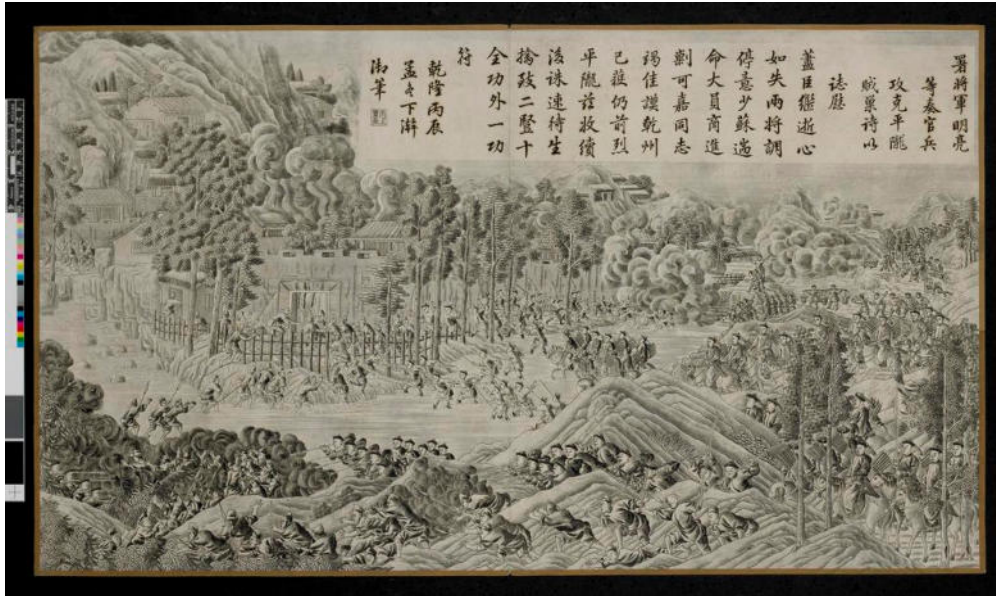 署將軍明亮
等奏官兵
攻克平隴
賦黑詩以
誌慰
藎臣繼逝心
如失兩將調
停意少蘇遄
命大員商進
剿可嘉同志
竭佳謨乾州
已蕆仍前烈
平隴茲收續
後誅速待生
擒殘二豎十
全功外一功
符
乾隆丙辰
孟冬下澣
御筆